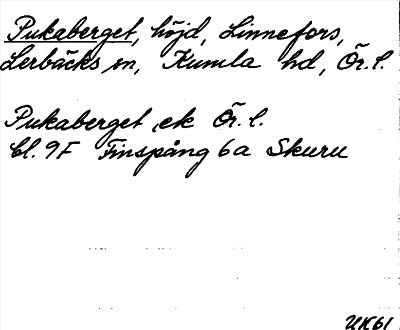 Pukaberget, höjd, Linnefors,
Lerbäcks sn, Kumla hd, Ör. l.
Pukaberget, ek Ör. l.
Bl. 9F Finspång 6a Skuru
UK61